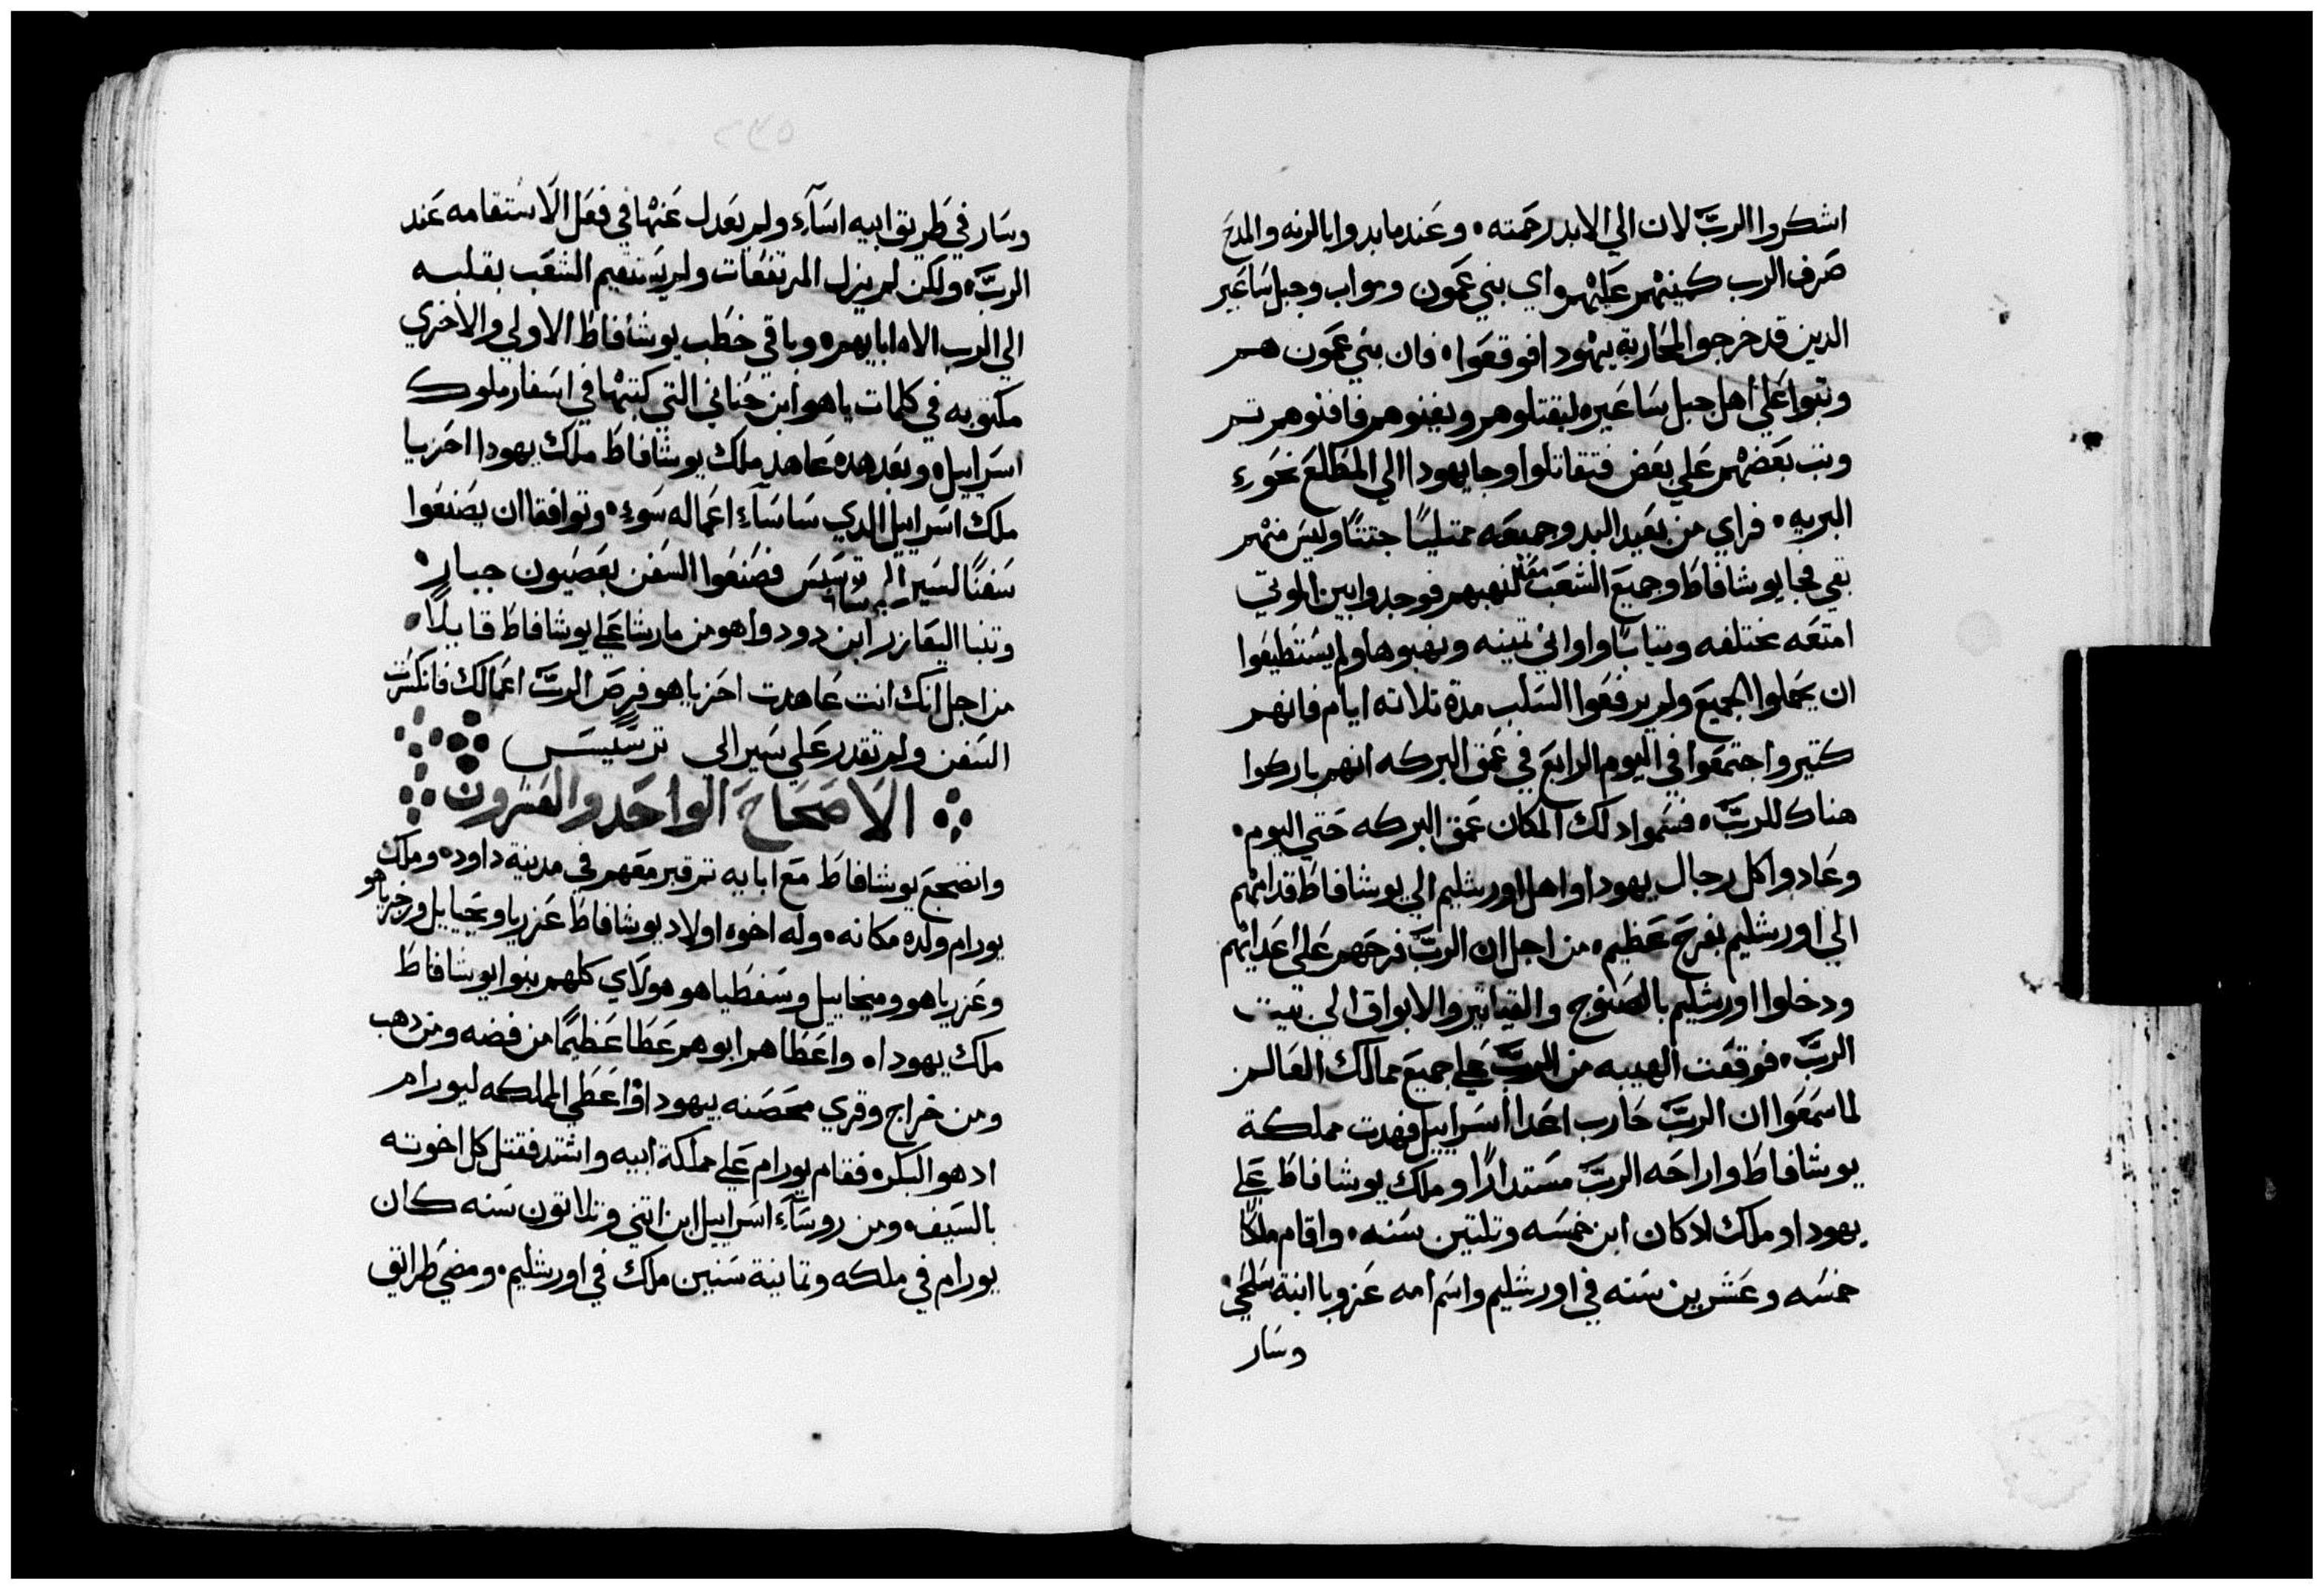 اشكروا الربَّ لان الي الابد رحمته • وعند ما بدوا بالرنه والمدح
صرف الرب كمينهم عليهم اي بني عمون ومواب وجبل ساعير
الدين قد خرجوا لمحاربة يهودا فوقعوا • فان بني عمون هم
وتبوا علي اهل جبل ساعير • ليقتلوهم ويفنوهم فافنوهم تم
وتب بعضهم علي بعض فتقاتلوا وجا يهودا الي المطلع نحو
البريه • فراي من بعيد البد وجميعه ممتليًا جتتًا وليس منهم
بقي فجا يوشافاط وجميع الشعب معه لنهبهم فوجدوا بين الموتي
امتعه مختلفه وتيابًا واواني تمينه ونهبوها ولم يستطيعوا
ان يحملوا الجميع ولم يرفعوا السلب مدة تلاته ايام فانهم
كتير واجتمعوا في اليوم الرابع في عمق البركه انهم باركوا
هناك للربَّ • فسموا دلك المكان عمق البركه حتي اليوم •
وعادوا كل رجال يهودا واهل اورشليم الي يوشافاط قدامهم
الي اورشليم بفرح عظيم • من اجل ان الربَّ فرحهم علي اعدايهم
ودخلوا اورشليم بالصنوج والقياتير والابواق الي بيت
الربَّ • فوقعت الهيبه من الربَّ علي جميع ممالك العالم
لما سمعوا ان الربَّ حارب اعدا اسراييل فهدت مملكة
يوشافاط واراحه الربَّ مستدارًا وملك يوشافاط علي
يهودا وملك اد كان ابن خمسه وتلتين سنه • واقام ملكًا
خمسه وعشرين سنه في اورشليم واسم امه عزوبا ابنة سلحي •
وسار
٢٣٥
وسار في طريق ابيه اساء ولم يعدل عنها في فعل الاستقامه عند
الربَّ • ولكن لم يزل المرتفعات ولم يستقيم الشعب بقلبه
الي الرب الاه ابايهم • وباقي خطب يوشافاط الاولي والاخري
مكتوبه في كلمات ياهو ابن حناني التي كتبها في اسفار ملوك
اسراييل • وبعد هده عاهد ملك يوشافاط ملك يهودا احزيا
ملك اسراييل الدي ساساء اعماله سوء • وتوافقا ان يصنعوا
سفنًا لسير الي ترسيس فصنعوا السفن بعصيون جبار •
وتنبا اليعازر ابن دودوا هو من مارشا علي يوشافاط قايلًا •
من اجل انك انت عاهدت احزياهو فرص الربَّ اعمالك فانكسرت
السفن ولم تقدر علي سير الي ترسيس
الاصحاح الواحد والعشرون
وانضجع يوشافاط مع ابايه تم قبر معهم في مدينة داود • وملك
يورام ولده مكانه • وله اخوه اولاد يوشافاط عزريا ويحياييل وزخرياهو
وعزرياهو وميخاييل وسفطياهو هولاي كلهم بنوا يوشافاط
ملك يهودا • واعطاهم ابوهم عطا عظيمًا من فضه ومن دهب
ومن خراج وقري محصنه بيهودا واعطي المملكه ليورام
اد هو البكر • فقام يورام علي مملكة ابيه واشتد فقتل كل اخوته
بالسيف • ومن روساء اسراييل ابن اتني وتلاتون سنه كان
يورام في ملكه وتمانية سنين ملك في اورشليم • ومضي طرايق